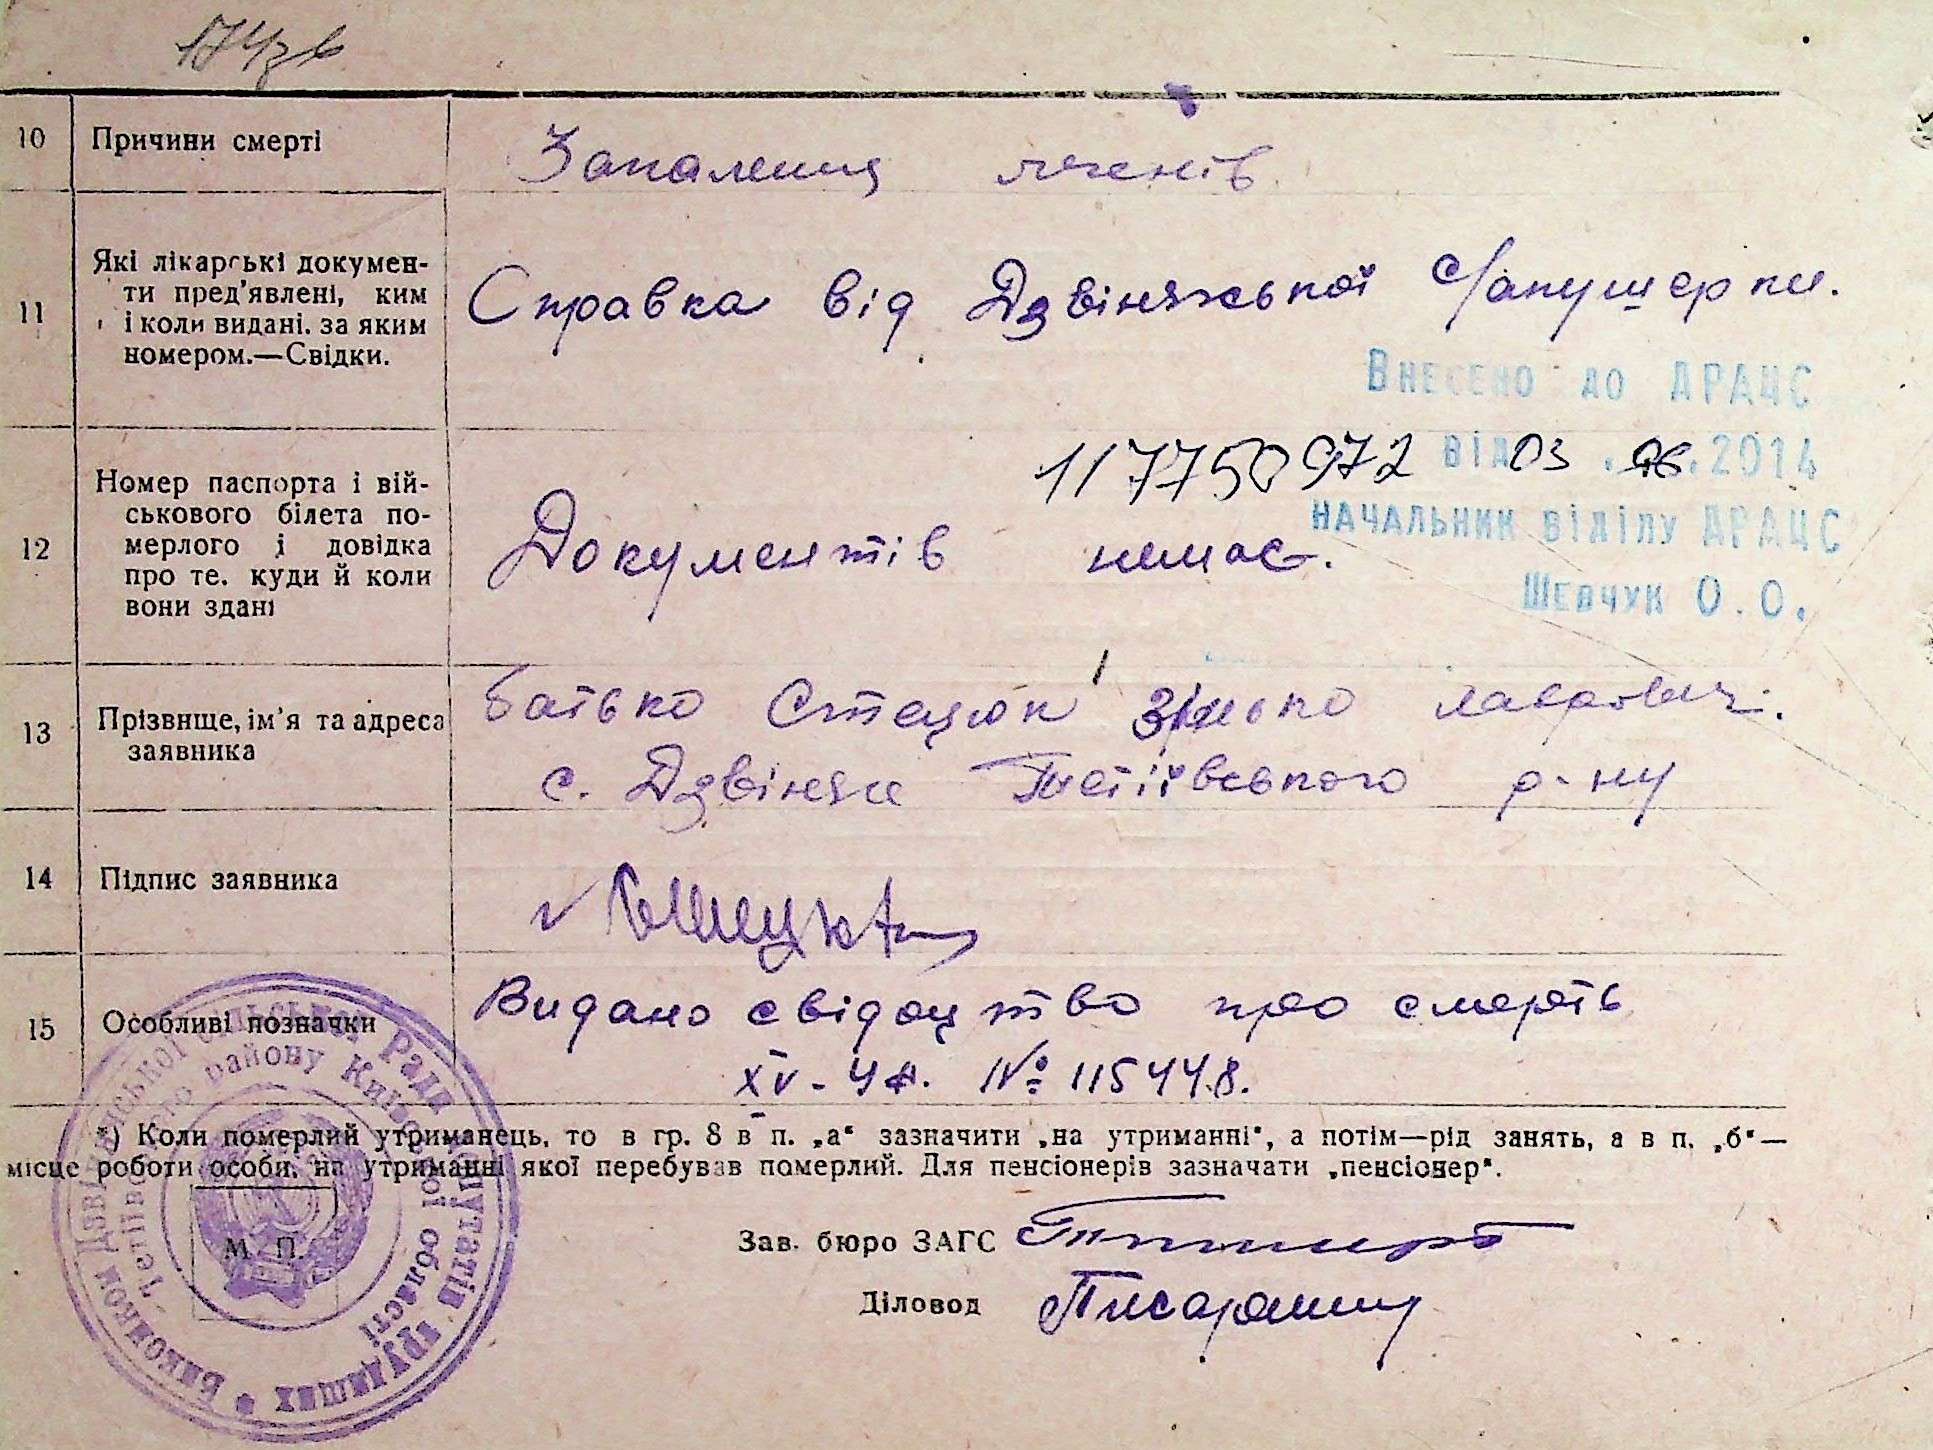 174зв
10 Причини смерті Запалення легенів.
11 Які лікарські докумен-
ти пред'явлені, ким
і коли видані. за яким
номером.—Свідки.
Справка від Дзвіняжської с/
Внесено до ДРАЦС
117750972 від 03 .06.2014
начальник відділу ДРАЦС
Шевчук О.О.
12 Номер паспорта і вій-
ськового білета по-
мерлого і довідка
про те. куди й коли
вони здані
Документів немає.
13 Прізвище, ім'я та адреса
заявника
батько Стецюк
с. Дзвіняче Тетіївського р-ну
14 Підпис заявника
15 Особливі позначки
Видано свідоцтво про смерть
№ 115448.
*) Коли померлий утриманець, то в гр. 8 в п. „а“ зазначити „на утриманні“, а потім—рід занять, а в п. „б“—
місце роботи особи, на утриманні якої перебував померлий. Для пенсіонерів зазначати „пенсіонер“.
М. П.
Зав. бюро ЗАГС
Діловод
Виконком сільської Ради депутатів трудящих
Тетіївського району Київської області